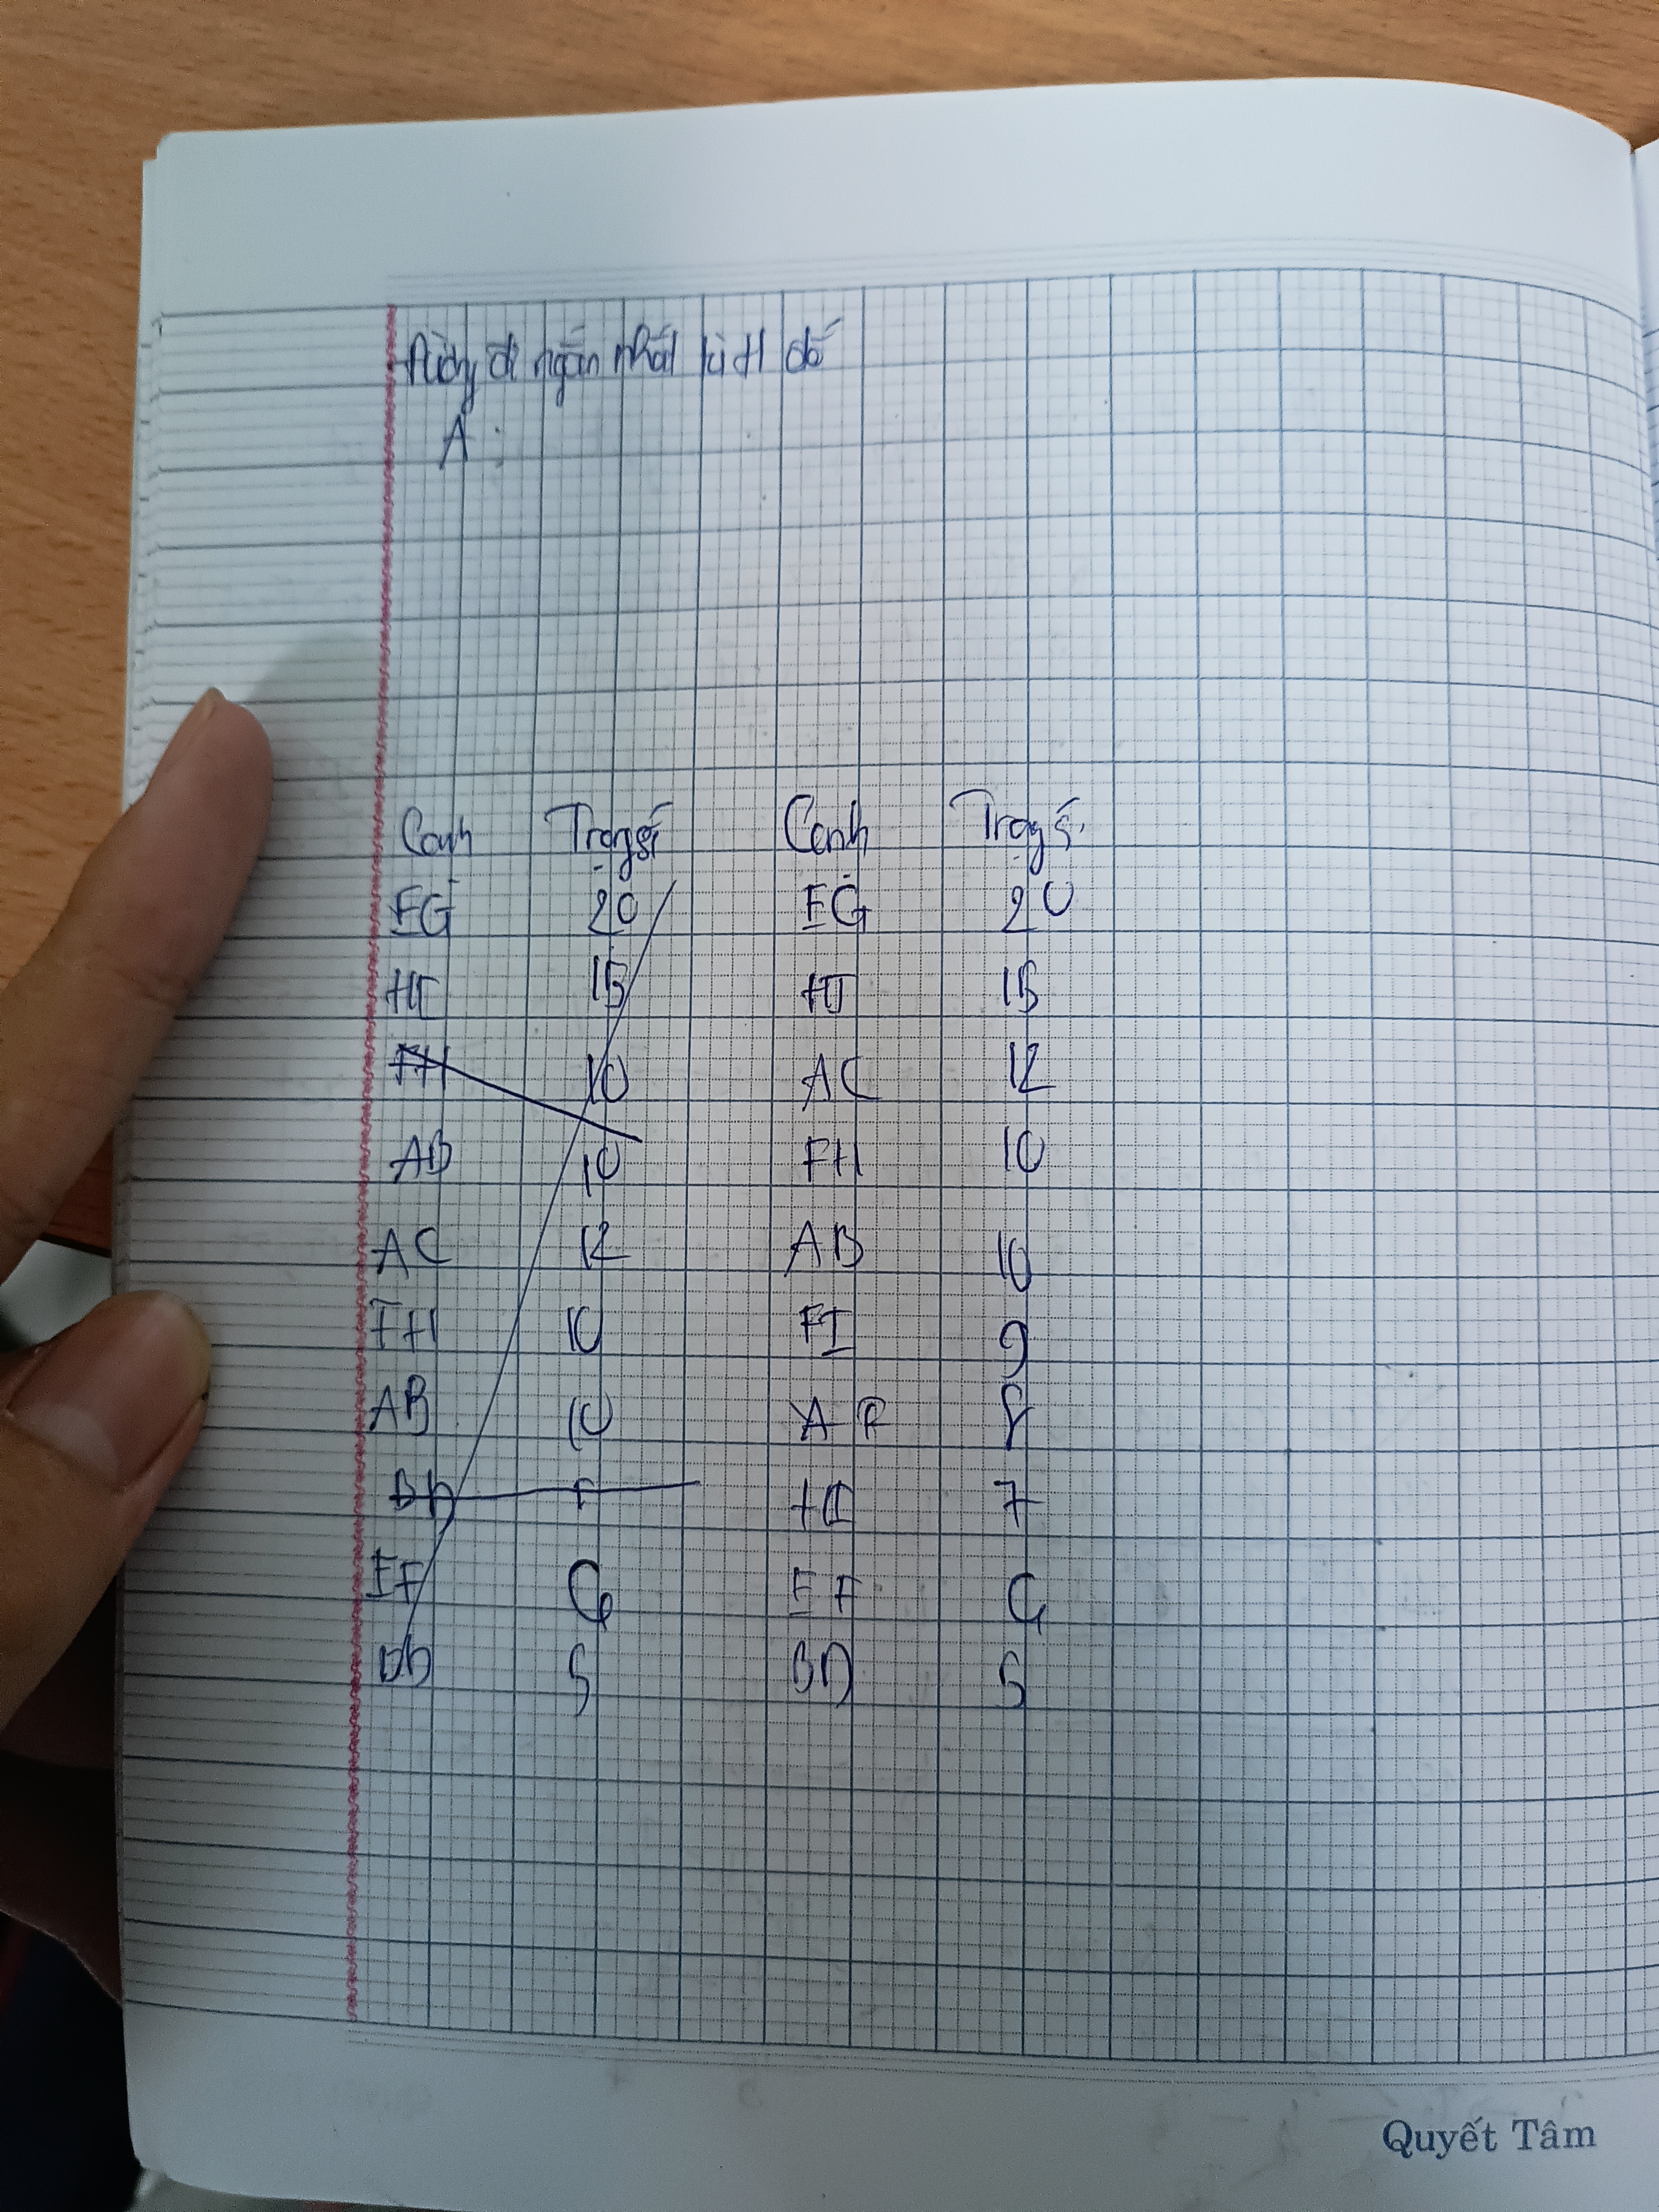 đi ngắn nhất từ H đến
A :
Cạnh Trọng số Cạnh Trọng số
EG 20 EG 20
HI 15 HI 15
FH 10 AC 12
AB 10 FH 10
AC 12 AB 10
FH 10 FI 9
AB 10 A 8
7
EF 6 EF 6
5 BD 5
Quyết Tâm